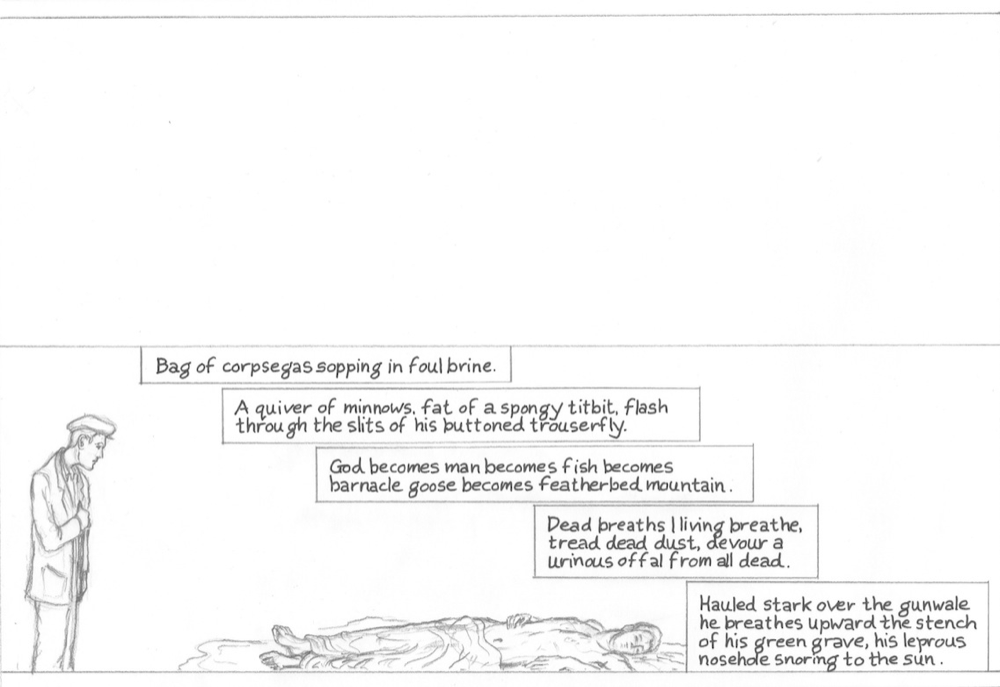 Bag of corpsegas sopping in foul brine.
A quiver of minnows, fat of a spongy titbit, flash
through the slits of his buttoned trouserfly.
God becomes man becomes fish becomes
barnacle goose becomes featherbed mountain.
Dead breaths I living breathe,
tread dead dust, devour a
urinous offal from all dead.
Hauled stark over the gunwale
he breathes upward the stench
of his green grave, his leprous
nosehole snoring to the sun.